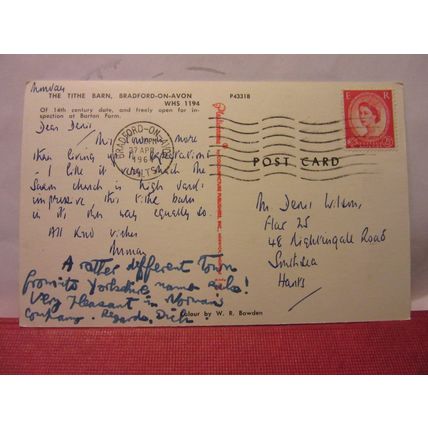 Monday
THE TITHE BARN, BRADFORD-ON-AVON
WHS 1194
Of 14th century date, and freely open for in-
spection at Barton Farm.
P43318
Dear Denis
This more
than living up expectations
- I like it very much. The
Saxon church is high
impressive, this tithe barn
in it's own way equally so.
All kind wishes
A rather different Town
from its Yorkshire namesake!
Very pleasant in Norman's
company. Regards, Dick
BRADFORD-ON-AVON
27 APR
1964
WILTS
E R
POST CARD
Mr Denis Wilson,
Flat 25
48 Nightingale Road
Southsea
Hants
Colour by W. R. Bawden